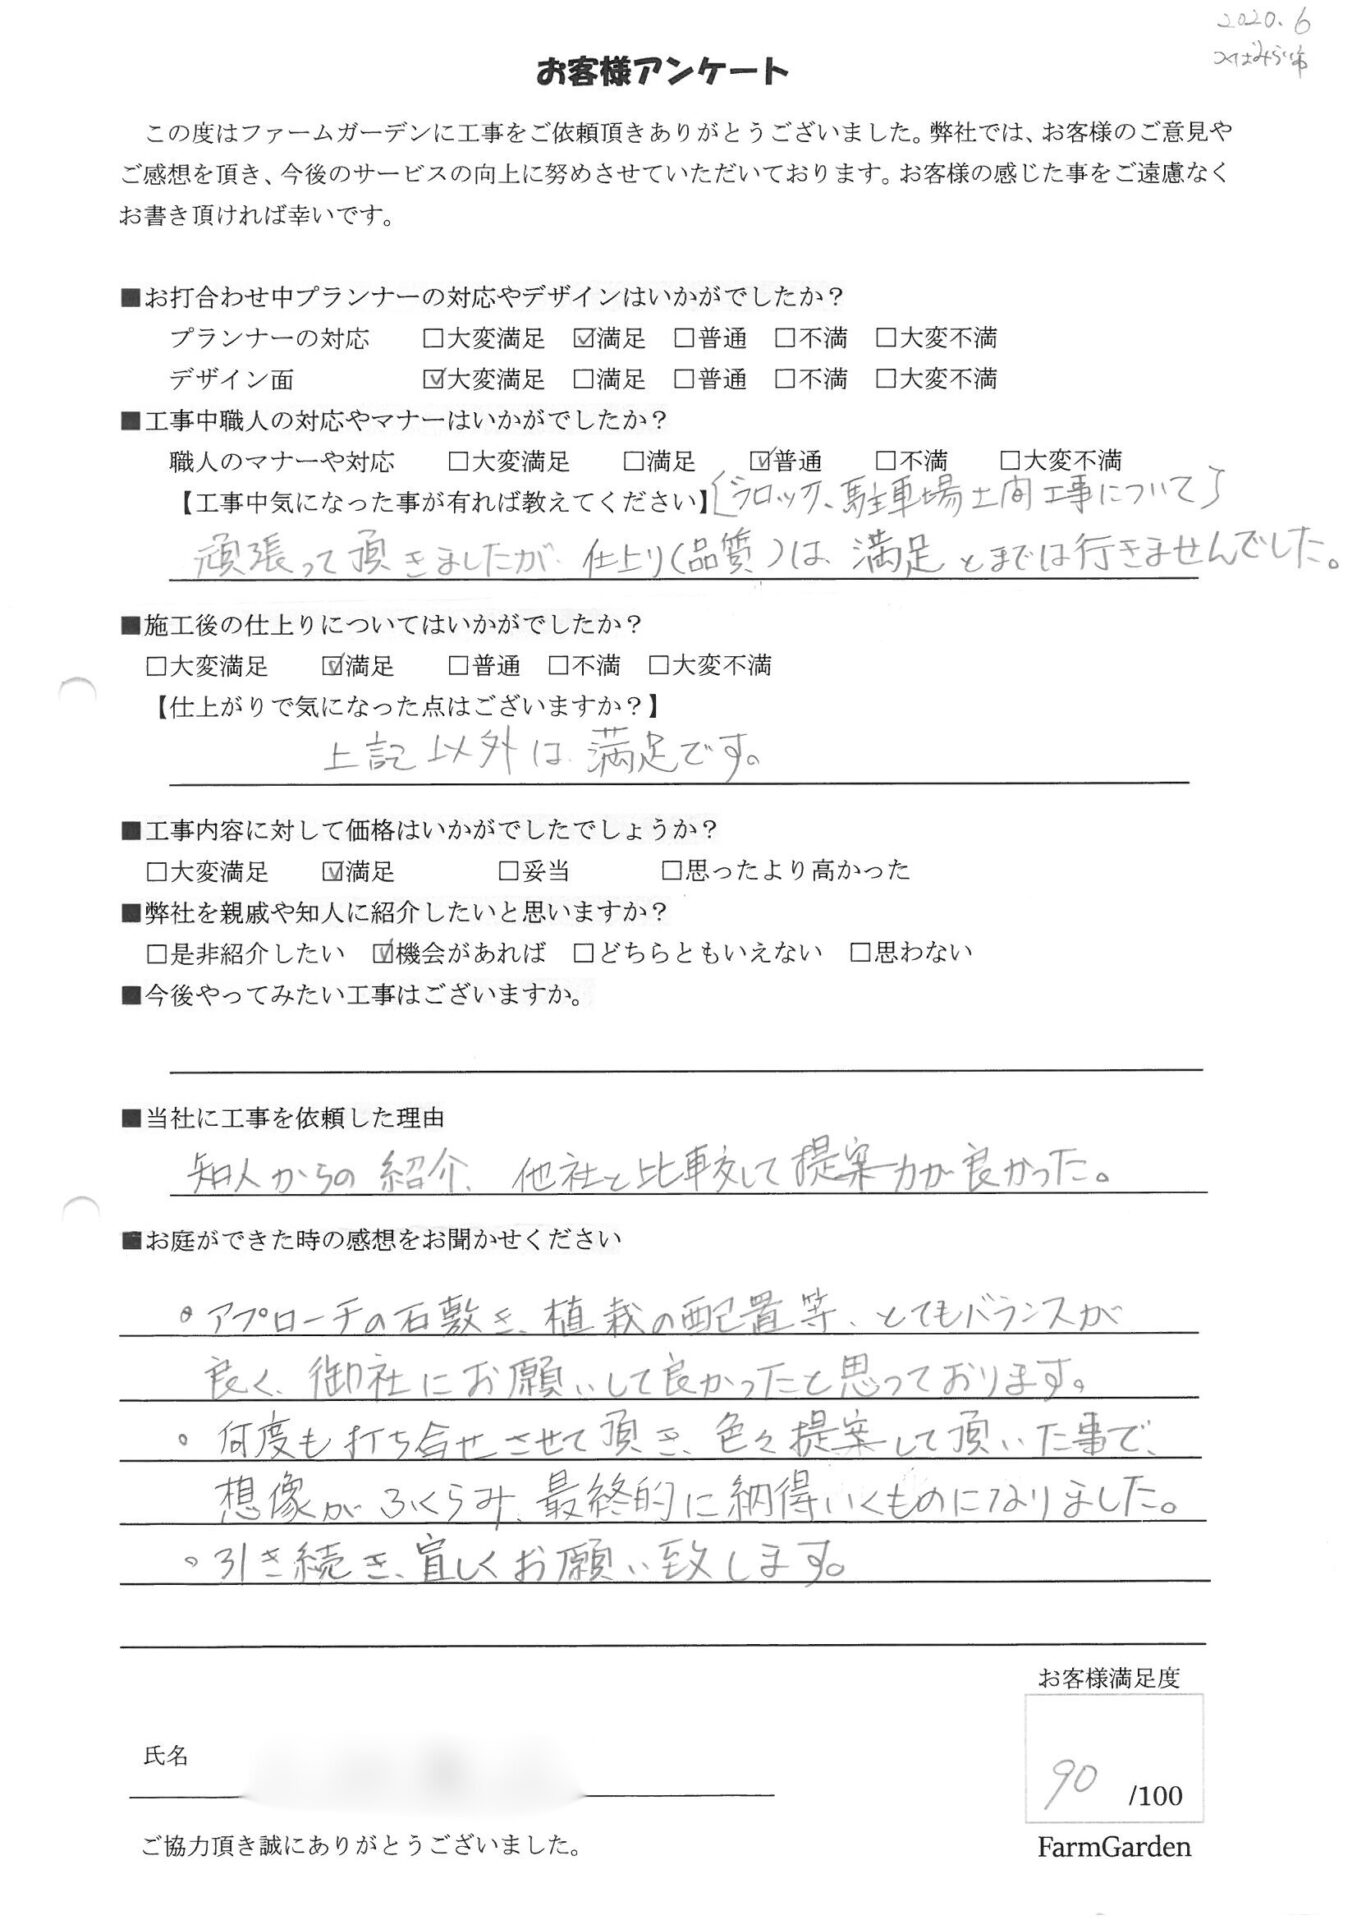 2020.6
つくばみらい市
お客様アンケート
この度はファームガーデンに工事をご依頼頂きありがとうございました。弊社では、お客様のご意見や
ご感想を頂き、今後のサービスの向上に努めさせていただいております。お客様の感じた事をご遠慮なく
お書き頂ければ幸いです。
■お打合わせ中プランナーの対応やデザインはいかがでしたか？
プランナーの対応 □大変満足 ☑満足 □普通 □不満 □大変不満
デザイン面 ☑大変満足 □満足 □普通 □不満 □大変不満
■工事中職人の対応やマナーはいかがでしたか？
職人のマナーや対応 □大変満足 □満足 ☑普通 □不満 □大変不満
【工事中気になった事が有れば教えてください】[ブロック、駐車場土間工事について]
頑張って頂きましたが、仕上り(品質)は、満足とまでは行きませんでした。
■施工後の仕上りについてはいかがでしたか？
□大変満足 ☑満足 □普通 □不満 □大変不満
【仕上がりで気になった点はございますか？】
上記以外は、満足です。
■工事内容に対して価格はいかがでしたでしょうか？
□大変満足 ☑満足 □妥当 □思ったより高かった
■弊社を親戚や知人に紹介したいと思いますか？
□是非紹介したい ☑機会があれば □どちらともいえない □思わない
■今後やってみたい工事はございますか。
■当社に工事を依頼した理由
知人からの紹介、他社と比較して提案力が良かった。
■お庭ができた時の感想をお聞かせください
・アプローチの石敷き、植栽の配置等、とてもバランスが
良く、御社にお願いして良かったと思っております。
・何度も打ち合せさせて頂き、色々提案して頂いた事で、
想像がふくらみ、最終的に納得いくものになりました。
・引き続き、宜しくお願い致します。
お客様満足度
90 /100
氏名
FarmGarden
ご協力頂き誠にありがとうございました。